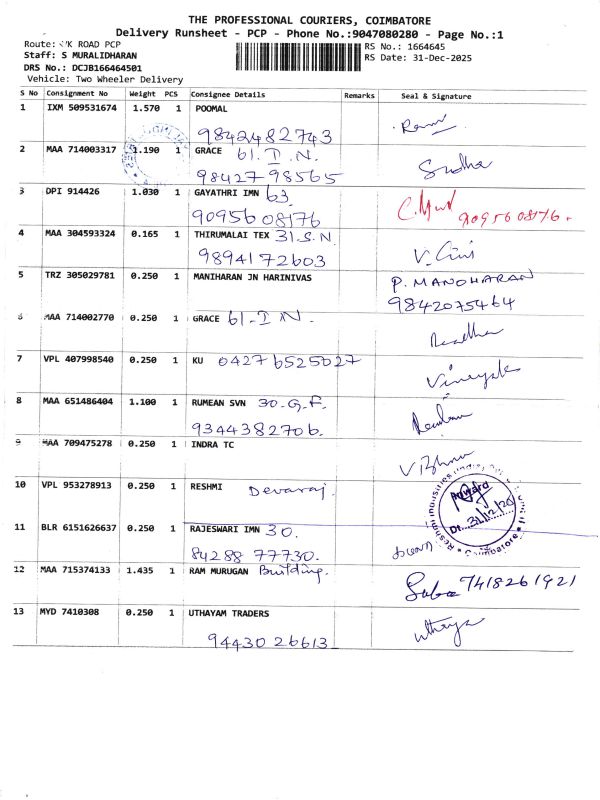 THE PROFESSIONAL COURIERS, COIMBATORE
Delivery Runsheet - PCP - Phone No.:9047080280 - Page No.:1
Route: VK ROAD PCP
RS No.: 1664645
Staff: S MURALIDHARAN
RS Date: 31-Dec-2025
DRS No.: DCJB166464501
Vehicle: Two Wheeler Delivery
S No Consignment No Weight PCS Consignee Details Remarks Seal & Signature
1 IXM 509531674 1.570 1 POOMAL
9842482743
2 MAA 714003317 1.190 1 GRACE 61. I. N.
9842798565 Sudha
3 DPI 914426 1.030 1 GAYATHRI IMN 63.
9095608176 9095608176.
4 MAA 304593324 0.165 1 THIRUMALAI TEX 31.S.N.
9894172603
5 TRZ 305029781 0.250 1 MANIHARAN JN HARINIVAS P. MANOHARAN
9842075464
6 MAA 714002770 0.250 1 GRACE 61-I N.
7 VPL 407998540 0.250 1 KU 04276525027
Vinayak
8 MAA 651486404 1.100 1 RUMEAN SVN 30.G.F.
9344382706.
9 MAA 709475278 0.250 1 INDRA TC
10 VPL 953278913 0.250 1 RESHMI Devaraj.
31/12/20
11 BLR 6151626637 0.250 1 RAJESWARI IMN 30.
84288 77730.
12 MAA 715374133 1.435 1 RAM MURUGAN Building.
7418261921
13 MYD 7410308 0.250 1 UTHAYAM TRADERS
9443026613